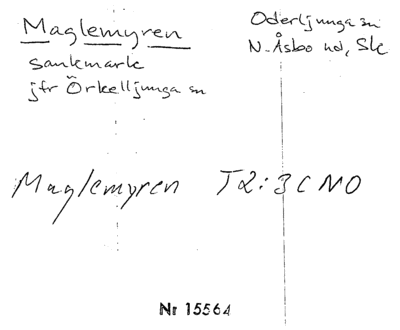 Maglemyren
sankmark
jfr Örkelljunga sn
Oderljunga sn
N. Åsbo hd, Sk
Maglemyren T2:3 C NO
Nr 15564